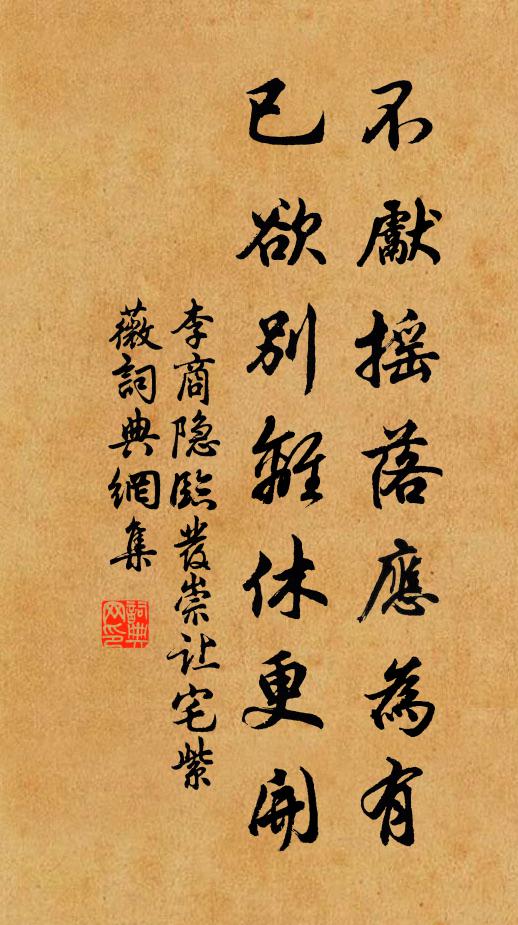 不獻摇落應為有
已欲別離休更開
李商隐臨發崇让宅紫
薇詞典網集
詞典
网印